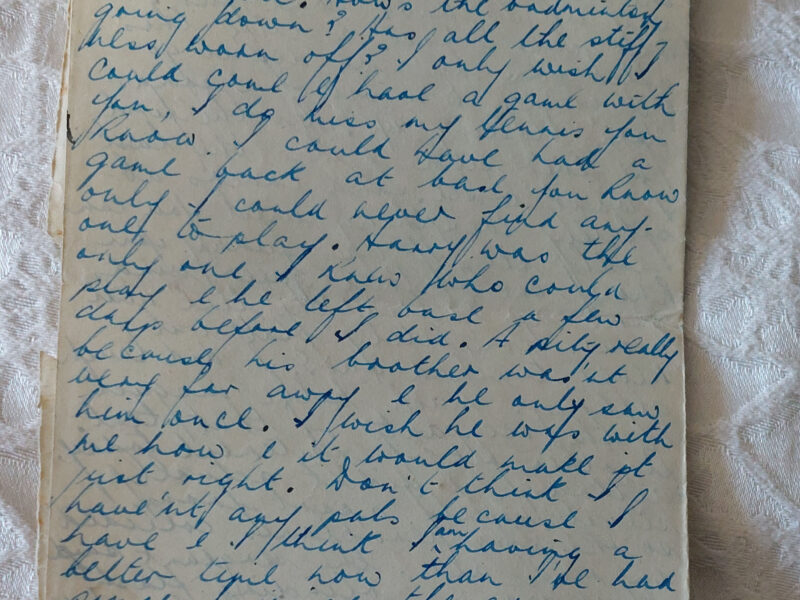 How's the badminton
going down? Has all the stiff-
ness worn off? I only wish I
could come & have a game with
you, I do miss my tennis you
know. I could have had a
game back at base you know
only I could never find any-
one to play. Harry was the
only one I knew who could
play & he left base a few
days before I did. A pity really
because his brother was'nt
very far away & he only saw
him once. I wish he was with
me now & it would make it
just right. Don't think I
have'nt any pals because I
have & I think I am having a
better time now than I've had